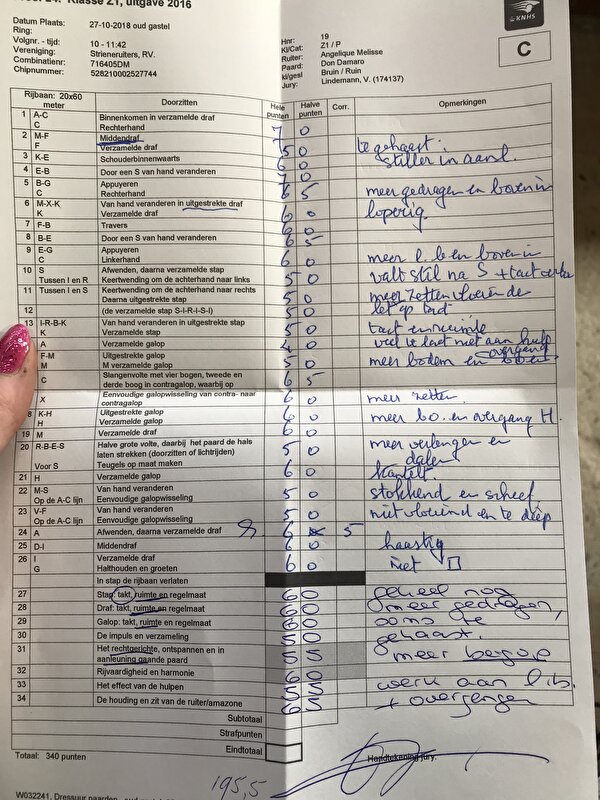 Klasse Z1, uitgave 2016
KNHS
Datum Plaats: 27-10-2018 oud gastel
Ring:
Volgnr. - tijd: 10 - 11:42
Vereniging: Strieneruiters, RV.
Combinatienr: 716405DM
Chipnummer: 528210002527744
Hnr: 19
Kl/Cat: Z1 / P
Ruiter: Angelique Melisse
Paard: Don Damaro
kl/gesl Bruin / Ruin
Jury: Lindeman, V. (174137)
C
Rijbaan: 20x60 meter Doorzitten Hele punten Halve punten Corr. Opmerkingen
1 A-C Binnenkomen in verzamelde draf
C Rechterhand 7 0
2 M-F Middendraf te gehaast
F Verzamelde draf 5 0 stiller in aanl.
3 K-E Schouderbinnenwaarts 6 0
4 E-B Door een S van hand veranderen 7 0
5 B-G Appuyeren meer gedragen en boven in
C Rechterhand 6 5
6 M-X-K Van hand veranderen in uitgestrekte draf loperig
K Verzamelde draf 6 0
7 F-B Travers 6 0
8 B-E Door een S van hand veranderen 6 5
9 E-G Appuyeren meer l.b en boven in
C Linkerhand 6 0
10 S Afwenden, daarna verzamelde stap valt stil na S + tact
Tussen I en R Keertwending om de achterhand naar links 5 0
11 Tussen I en S Keertwending om de achterhand naar rechts meer zetten vloeiende
Daarna uitgestrekte stap 5 0
12 (de verzamelde stap S-I-R-I-S-I) 5 0 let op tact
13 I-R-B-K Van hand veranderen in uitgestrekte stap tact en ruimte
K Verzamelde stap 5 0
A Verzamelde galop 4 0 veel te laat niet aan hulp
F-M Uitgestrekte galop overgang
M M verzamelde galop 5 0 meer bodem en boven
C Slangenvolte met vier bogen, tweede en
derde boog in contragalop, waarbij op 6 5
X Eenvoudige galopwisseling van contra- naar
contragalop 6 0 meer zetten.
8 K-H Uitgestrekte galop
H Verzamelde galop 6 0 meer bo. en overgang H.
19 M Verzamelde draf 6 0
20 R-B-E-S Halve grote volte, daarbij het paard de hals
laten strekken (doorzitten of lichtrijden) 5 0 meer verlengen en
Voor S Teugels op maat maken dalen
21 H Verzamelde galop 6 0 kantelt.
22 M-S Van hand veranderen
Op de A-C lijn Eenvoudige galopwisseling 5 0 stokkend en scheef
23 V-F Van hand veranderen
Op de A-C lijn Eenvoudige galopwisseling 5 0 niet vloeiend en te diep
24 A Afwenden, daarna verzamelde draf 6 5
25 D-I Middendraf 6 0 haastig
26 I Verzamelde draf
G Halthouden en groeten 6 0 niet
In stap de rijbaan verlaten
27 Stap: takt, ruimte en regelmaat 6 0 geheel nog
28 Draf: takt, ruimte en regelmaat 6 0 meer gedragen,
29 Galop: takt, ruimte en regelmaat 6 0 soms te
30 De impuls en verzameling 5 5 gehaast.
31 Het rechtgerichte, ontspannen en in
aanleuning gaande paard 5 5 meer bergop
32 Rijvaardigheid en harmonie 6 0
33 Het effect van de hulpen 5 5 werk aan l.b.
34 De houding en zit van de ruiter/amazone 6 5 + overgangen
Subtotaal
Strafpunten
Eindtotaal
Totaal: 340 punten
Handtekening jury.
195,5